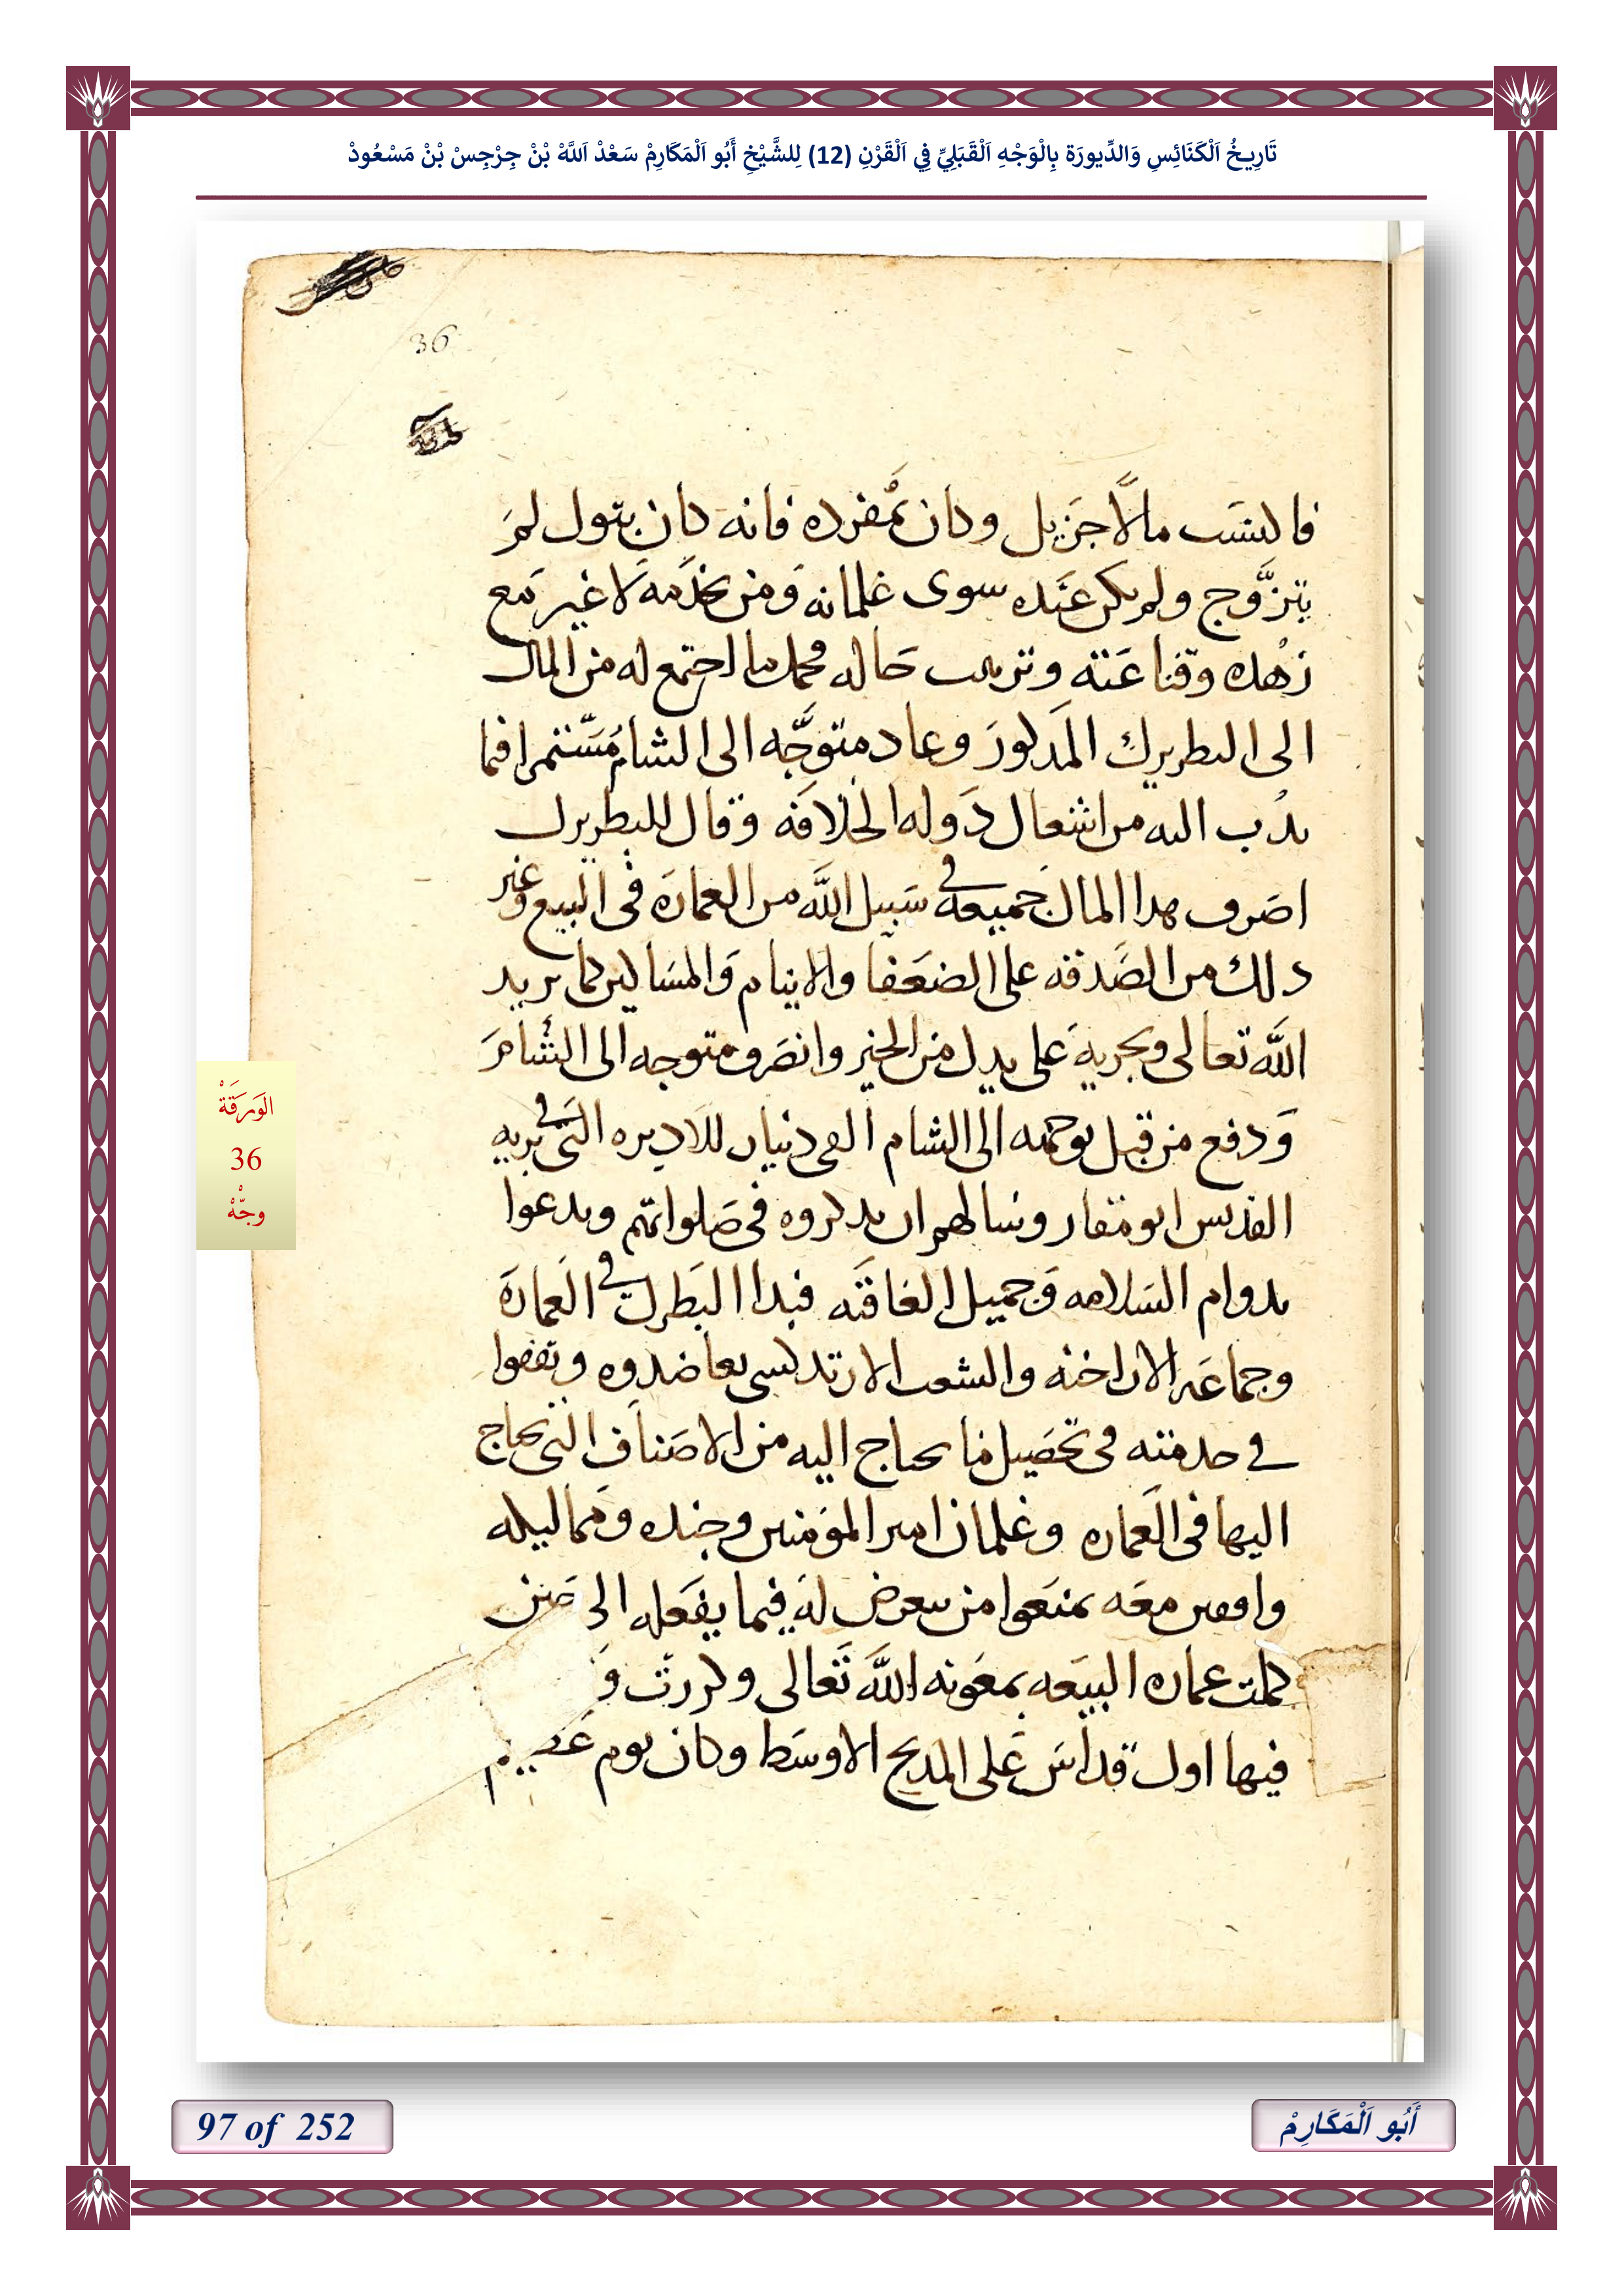 تَارِيخُ اَلْكَنَائِسِ وَالدِّيورَة بِالْوَجْهِ اَلْقَبَلِيِّ فِي اَلْقَرْنِ (12) لِلشَّيْخِ أَبُو اَلْمَكَارِمْ سَعْدْ اَللَّهْ بْنْ جِرْجِسْ بْنْ مَسْعُودْ
36
فاكتسَب مالًا جَزيل وكان بمُفرده فانه كان بتول لمَ
يتزوَّج ولم يكن عنَده سوى غلمانه وَمن يخدَمهَ لا غير مَع
زهُده وقناعَته وترهب حَاله محمل ما اجتمع له من المال
الى البطريرك المَدكورَ وعاد متوجَّه الى الشام مُسَّتمرا فيما
ندُب اليه من اشغال دَوله الخلافَه وقال للبطريرك
اصَرف هدا المال جَميعهَ في سَبيل اللَّه من العمارَه فى البيع وغير
دلك من الصَّدقه على الضعَفا والايتام وَالمسَاكين كما يريد
اللَّه تعالى ويجريهَ على يديك من الخير وانصَرف متوجه الى الشامَ
وَدفع من قبل توجهه الى الشام الفى دنيار للاديره التى في بريه
القديس ابو مقار وسالهم ان يدكروه فى صَلواتهم ويدعوا
بدوام السَلامه وَجميل العاقَبه فبدا البَطرك في العمارَه
وجماعَه الاراخنه والشعب الارتدكسى يعاضدوه ويقفوا
في خدمته فى تحصَيل ما يحتاج اليه من الاصَناف التى يحتاج
اليها فى العَماره وغلمان امير المؤمنين وجنده ومَماليكه
واقفين معَه يمنعَوا من يتعرض لهَ فيما يفعَله الى حَين
كملت عماره البيعَه بمعَونه اللَّه تَعالى وكررتَ وَ
فيها اول قداسَ عَلى المدبح الاوسَط وكان يوم عَظيم
الوَرَقَةْ
36
وجْهْ
97 of 252
أَبُو اَلْمَكَارِمْ